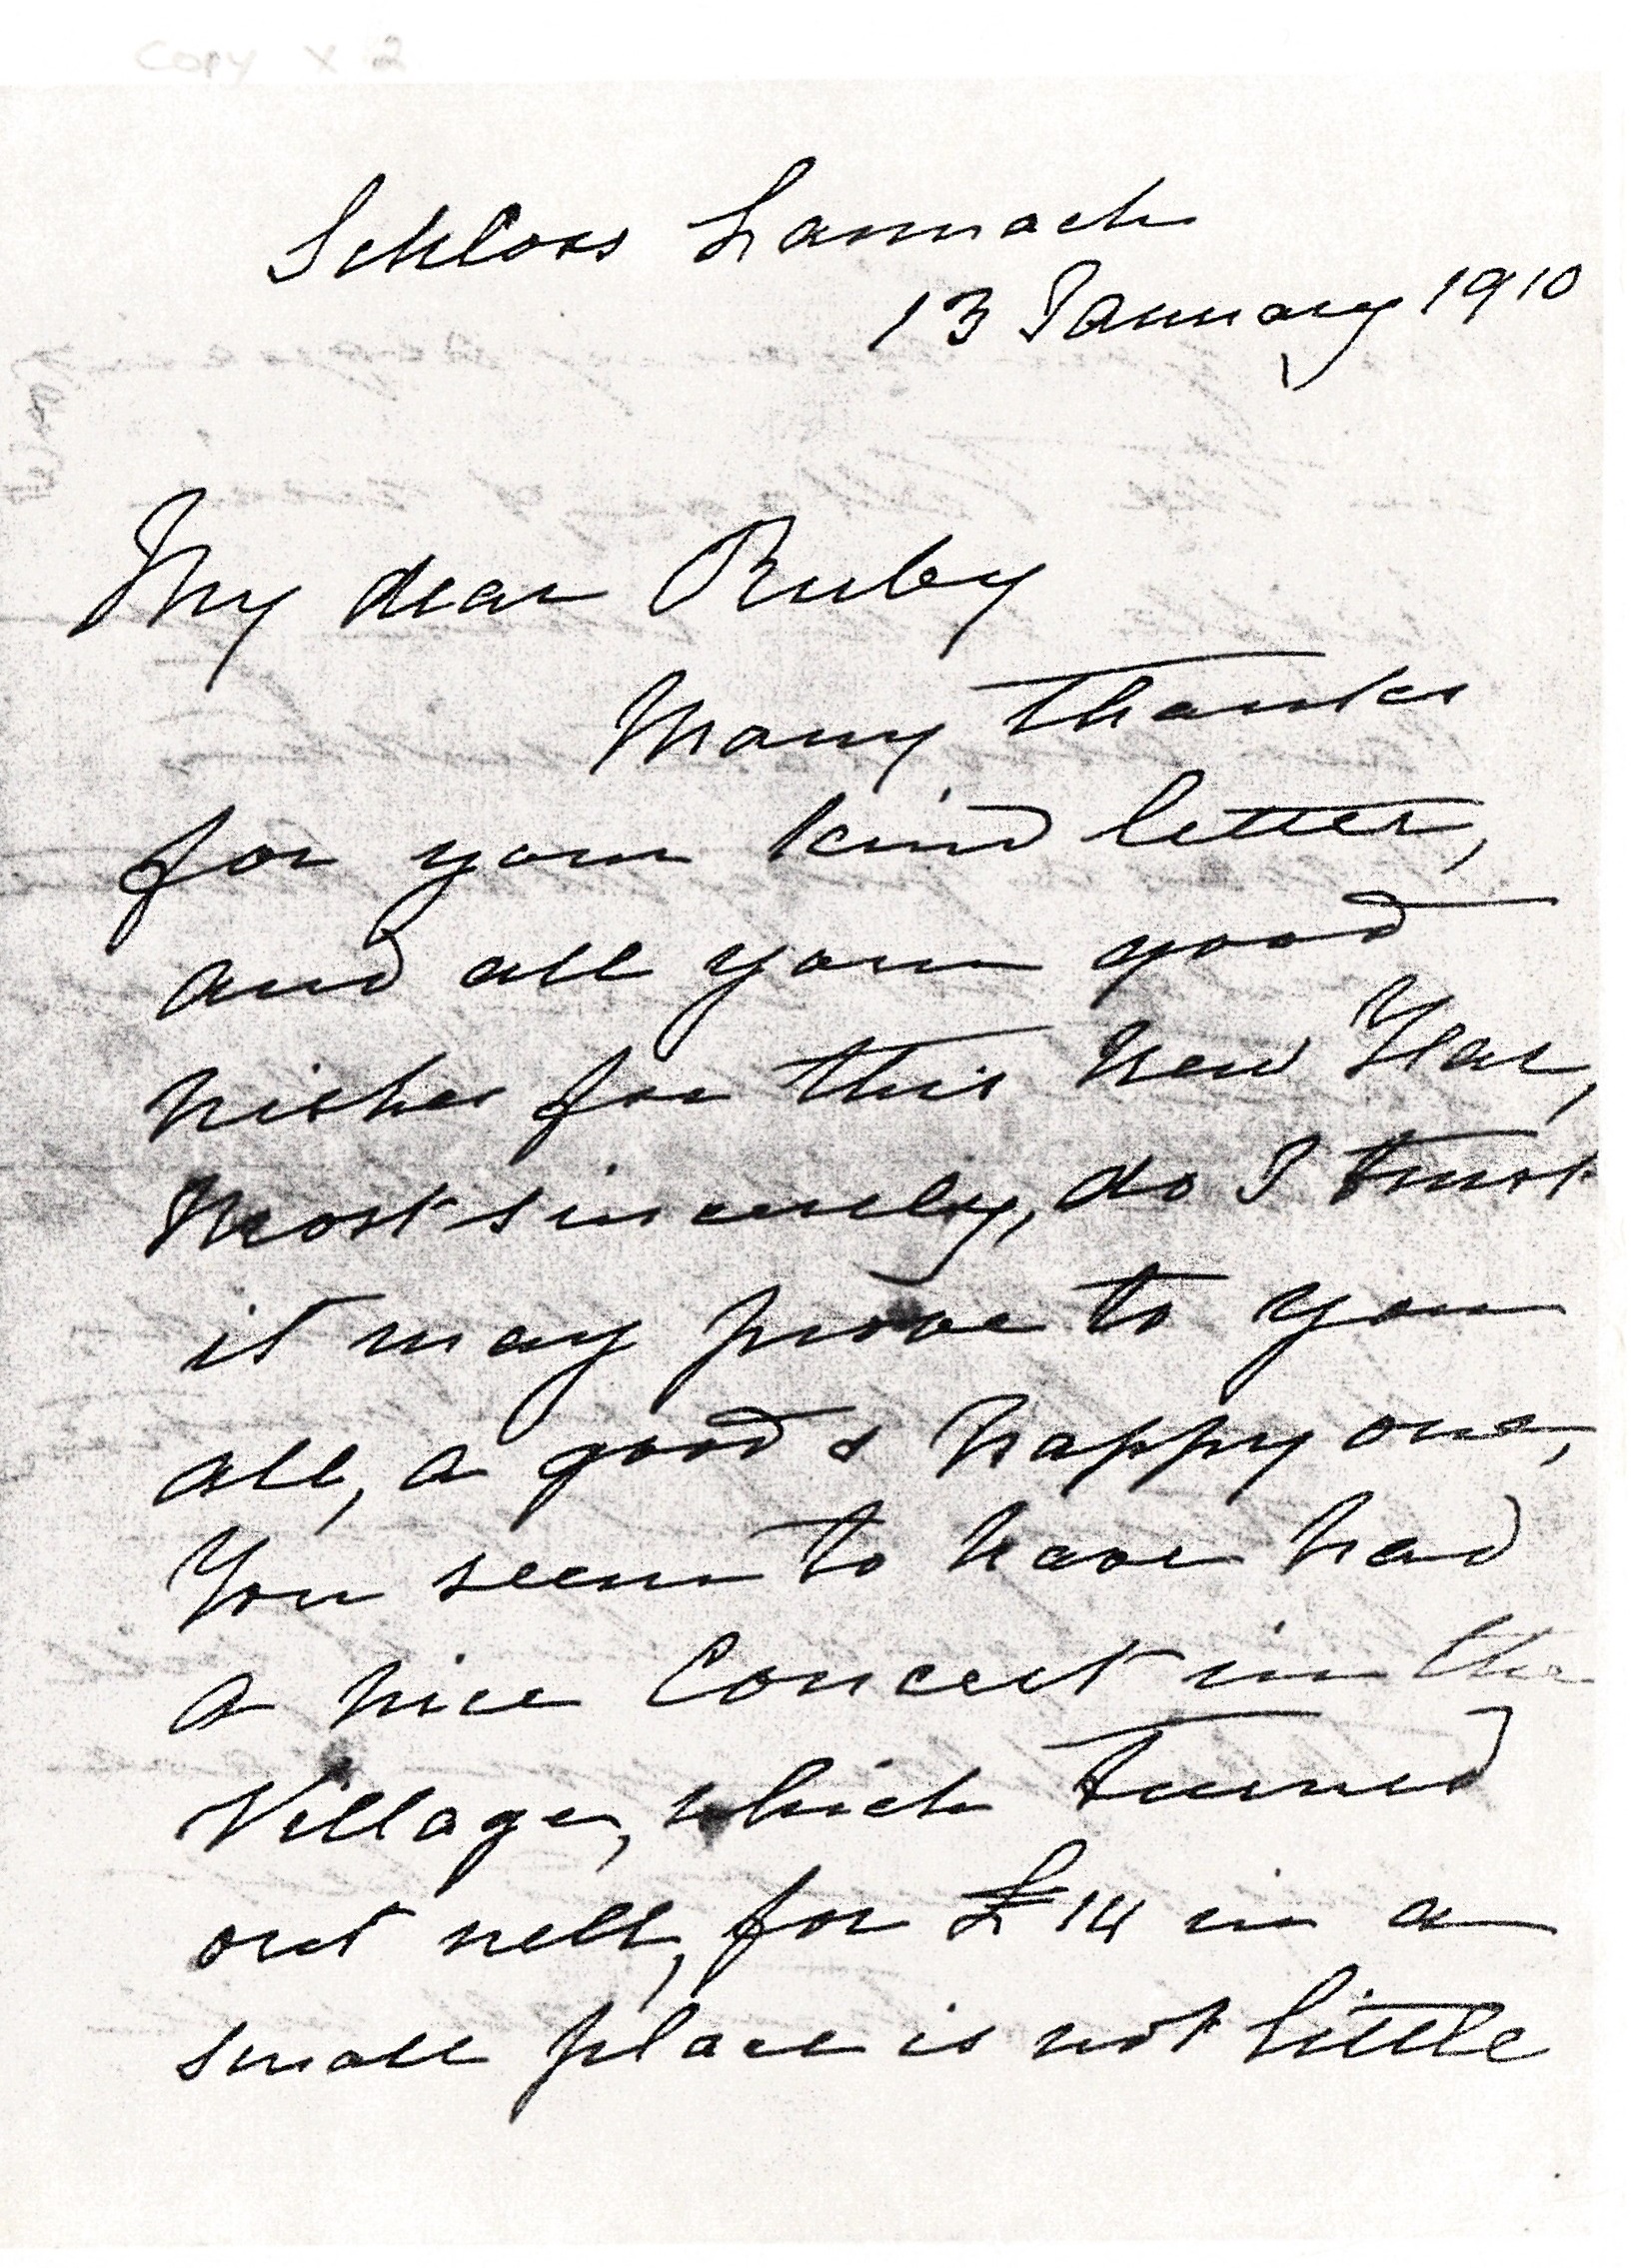 Copy x 2
Schloss Lannach
13 January 1910
My dear Ruby
Many thanks
for your kind letter,
and all your good
wishes for this New Year,
Most sincerely, do I trust
it may prove to you
all, a good & happy one,
You seem to have had
a nice Concert in the
Village, which turned
out well, for £14 in a
small place is not little